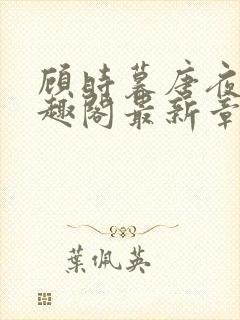 顾时暮唐夜
趣阁最新章
葉佩英